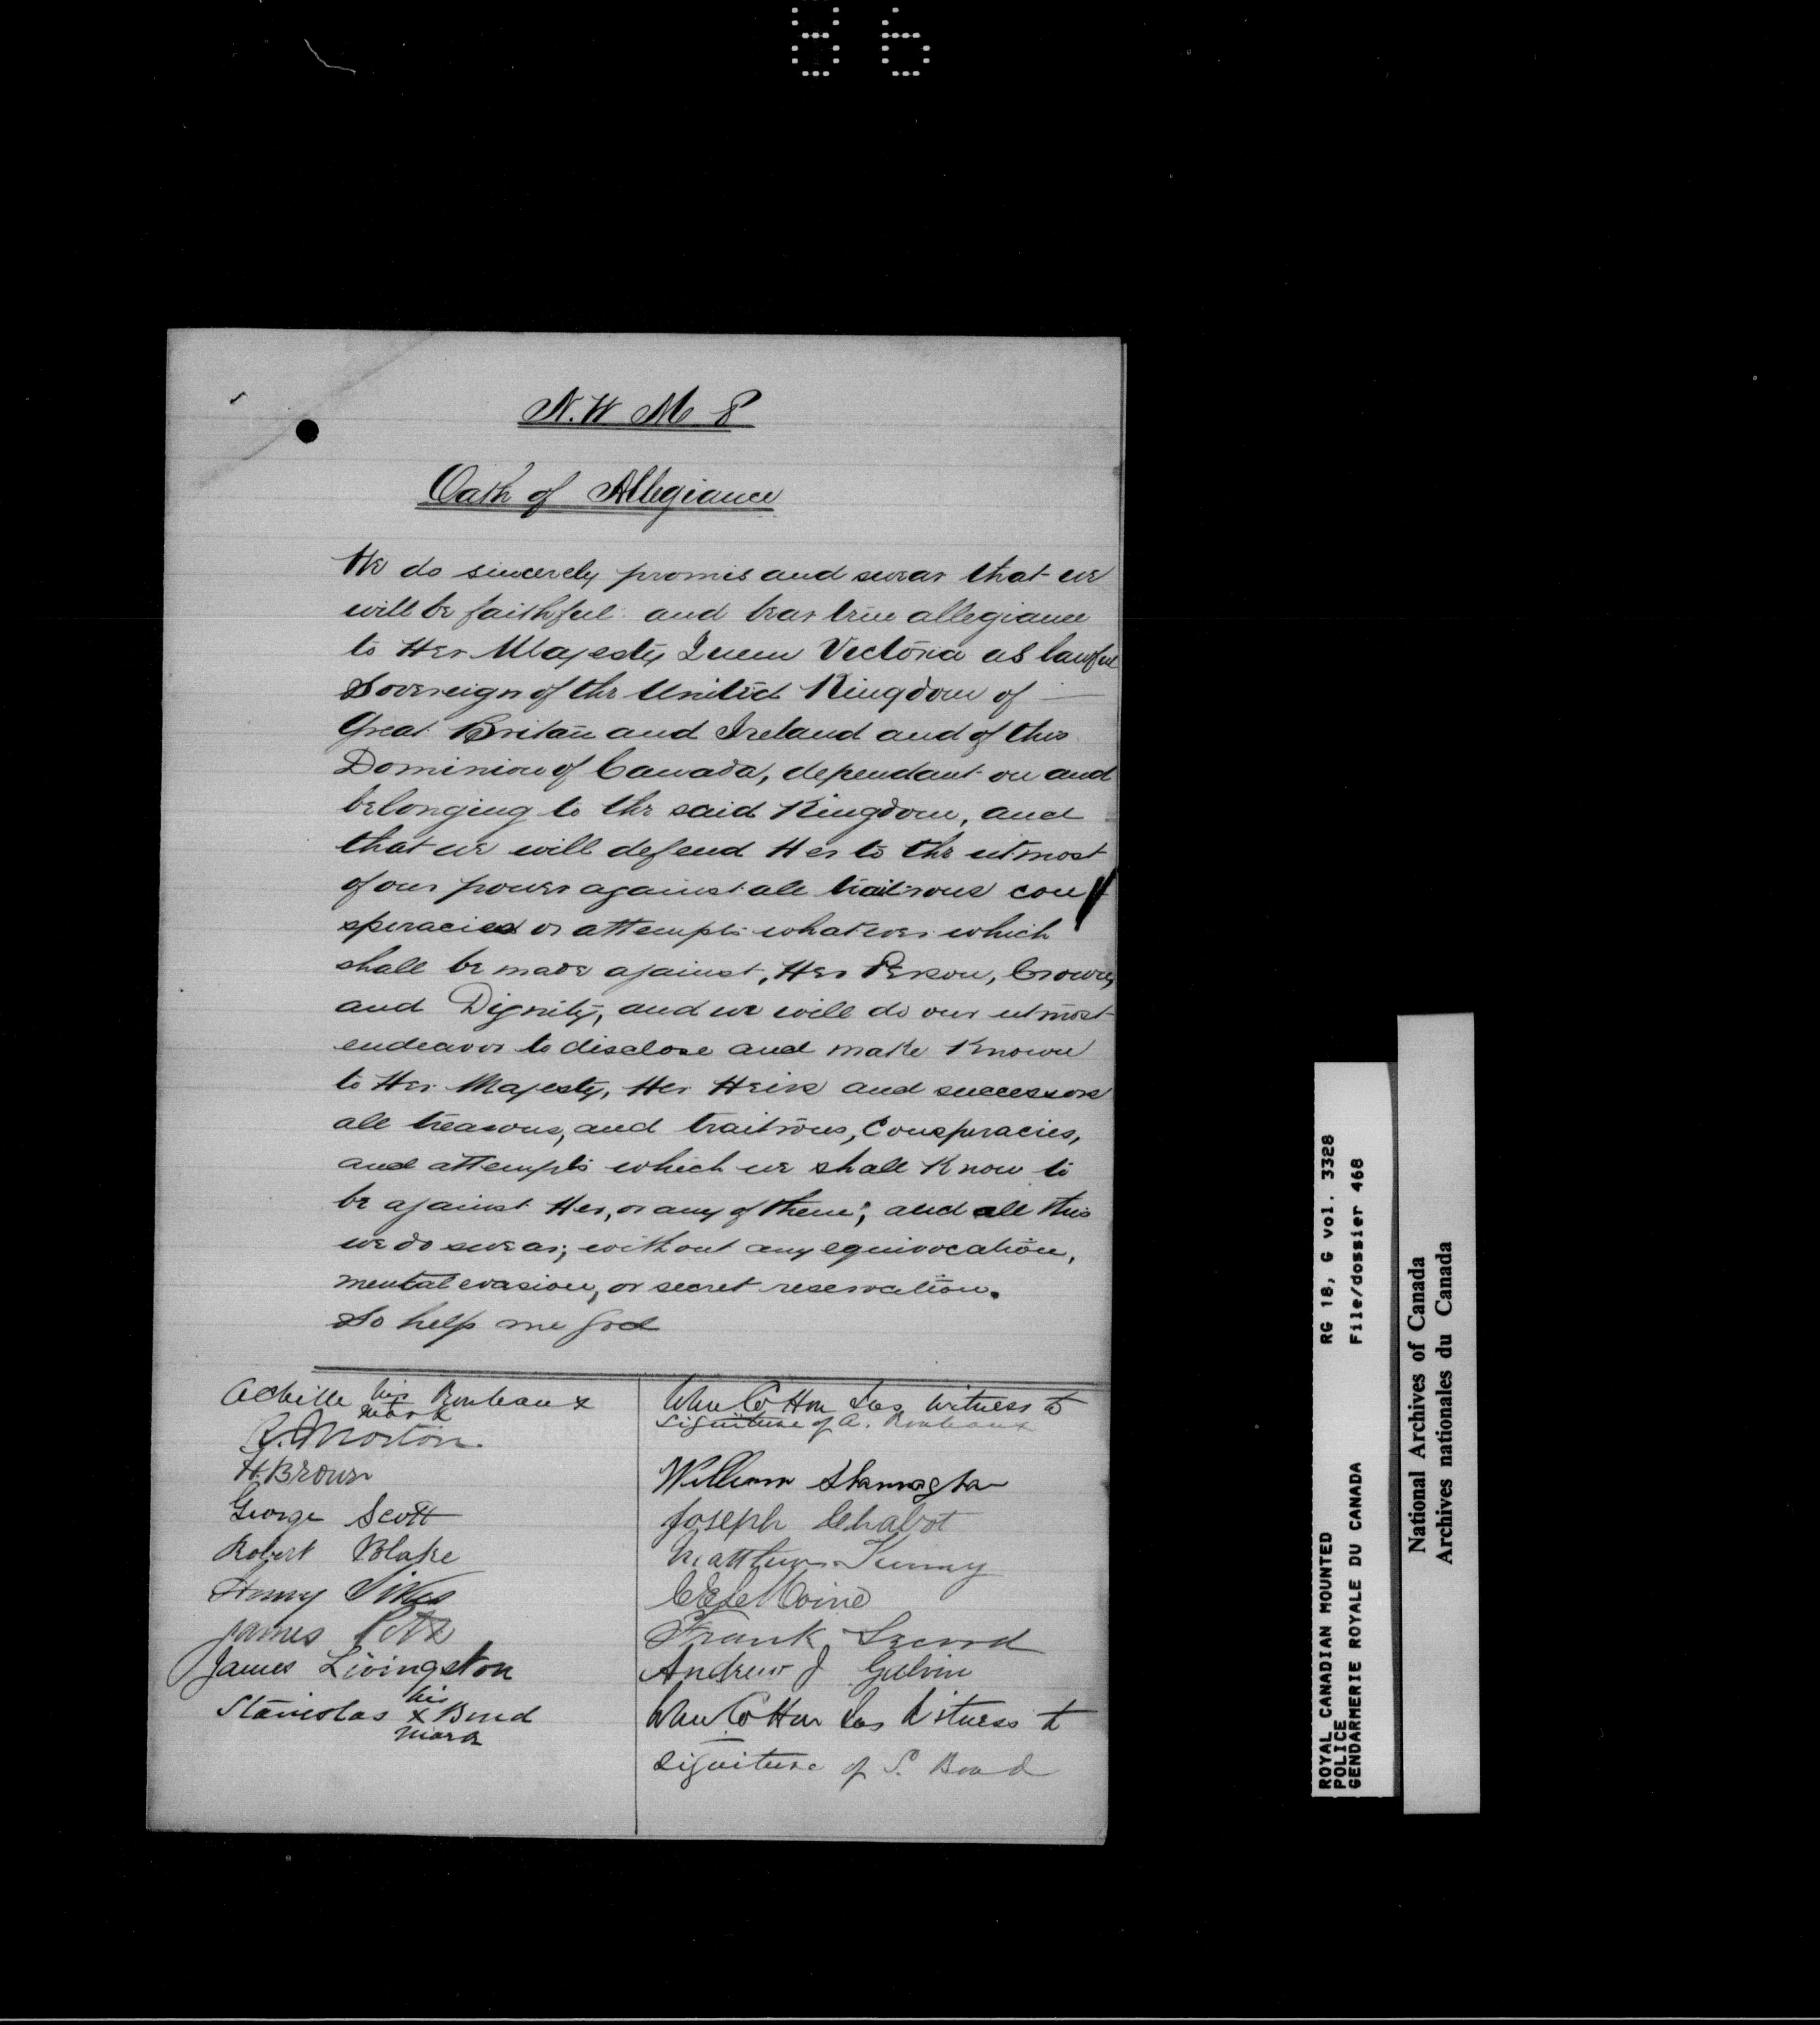 86
N. W M P
Oath of Allegiance
We do sincerely promis and swear that we
will be faithful and bear true allegiance
to Her Majesty Queen Victoria as lawful
Sovereign of the United Kingdom of —
Great Britain and Ireland and of this
Dominion of Canada, dependant on and
belonging to the said Kingdom, and
that we will defend Her to the utmost
of our power against all traitrous con
speracies or attempts whatever which
shall be made against, Her Person, Crown,
and Dignity, and we will do our utmost
endeavor to disclose and make Known
to Her Majesty, Her Heirs and successors
all treasons, and traitrous, Conspiracies,
and attempts which we shall Know to
be against Her, or any of them; and all this
we do swear; without any equivocation,
mental evasion, or secret reservation.
So help me God
Achille his mark x
R. Morton
H. Brown
George Scott
Robert Blake
Henry
James
James Livingston
Stanislas his x mark Bond
Witness to
Signiture of A.
William
Joseph Chabot
Matthew
C E LeMoine
Frank Secord
Andrew J Gulvin
Witness to
Signiture of S. Bond
ROYAL CANADIAN MOUNTED RG 18, G vol. 3328
POLICE
GENDARMERIE ROYALE DU CANADA File/dossier 468
National Archives of Canada
Archives nationales du Canada